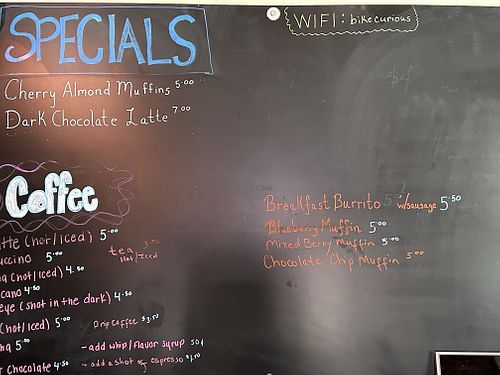 SPECIALS
WIFI: bikecurious
Cherry Almond Muffins 5.00
Dark Chocolate Latte 7.00
Coffee
tte (hot/iced) 5.00
uccino 5.00
tea 3.50
Hot/Iced
a (hot/iced) 4.50
cano 4.50
eye (shot in the dark) 4.50
(hot/iced) 5.00
Drip Coffee $3.50
ha 5.00
- add whip/flavor syrup 50¢
r chocolate 4.50
- add a shot of espresso $1.50
Breakfast Burrito w/sausage 5.50
Blueberry Muffin 5.00
Mixed Berry Muffin 5.00
Chocolate Chip Muffin 5.00